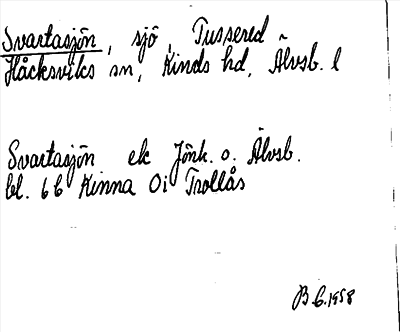 Svartasjön, sjö, Tussered
Håcksviks sn, Kinds hd, Älvsb. l
Svartasjön ek Jönk. o. Älvsb.
bl. 6b Kinna Oi Trollås
B G. 1958